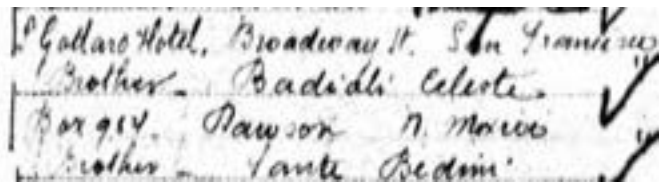 St Gottaro Hotel, Broadway St. San Francisco
Brother - Badiali Celeste
Box 914. Dawson N. Mexico
Brother - Sante Bedini